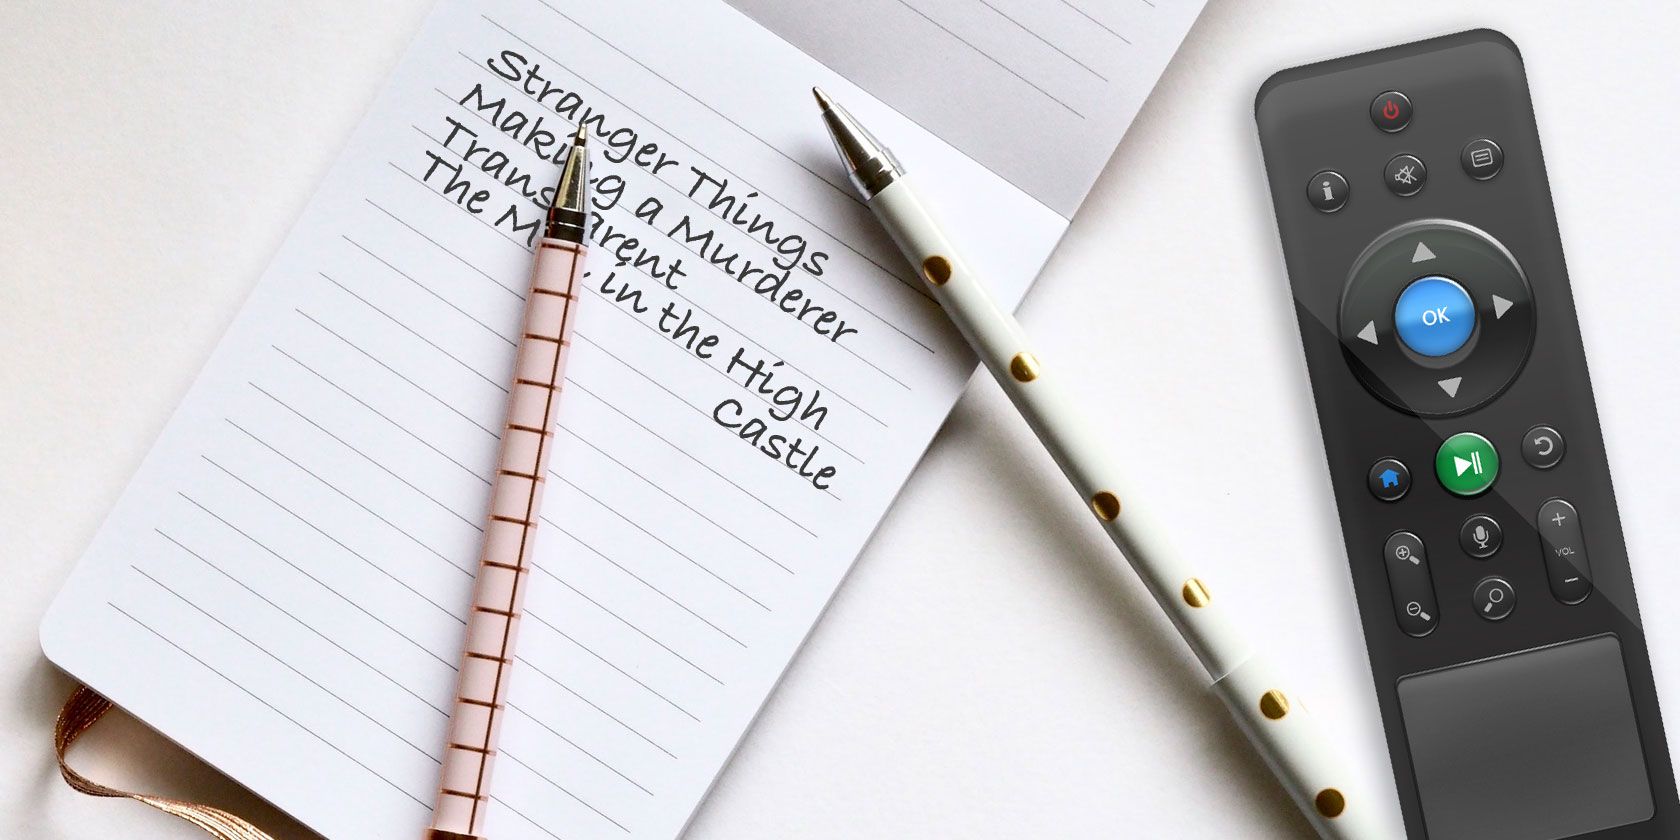 Stranger Things
Making a Murderer
Transparent
The Man in the High
Castle
OK
VOL